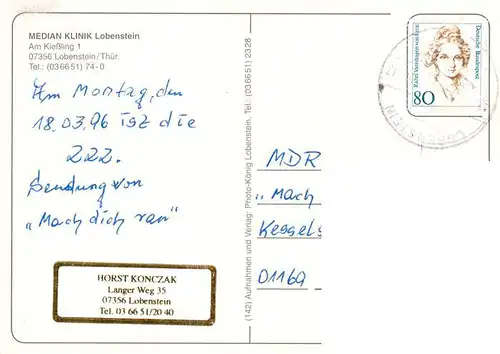 MEDIAN KLINIK Lobenstein
Am Kießling 1
07356 Lobenstein/Thür.
Tel.: (03 66 51) 74-0
Am Montag, den
18.03.96 ist die
222.
Sendung von
„Mach dich ran"
HORST KONCZAK
Langer Weg 35
07356 Lobenstein
Tel. 03 66 51/20 40
(142) Aufnahmen und Verlag: Photo-König Lobenstein, Tel. (03 66 51) 23 28
Deutsche Bundespost
Rahel Varnhagen von Ense
80
LOBENSTEIN
MDR
„Mach
Kessels
01169